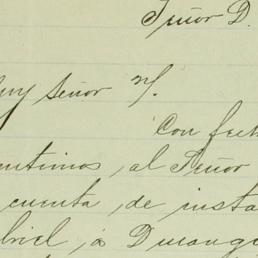 Señor D.
uy Señor m/.
Con fech
mitimos, al Señor
cuenta, de insta
briel, á Durang